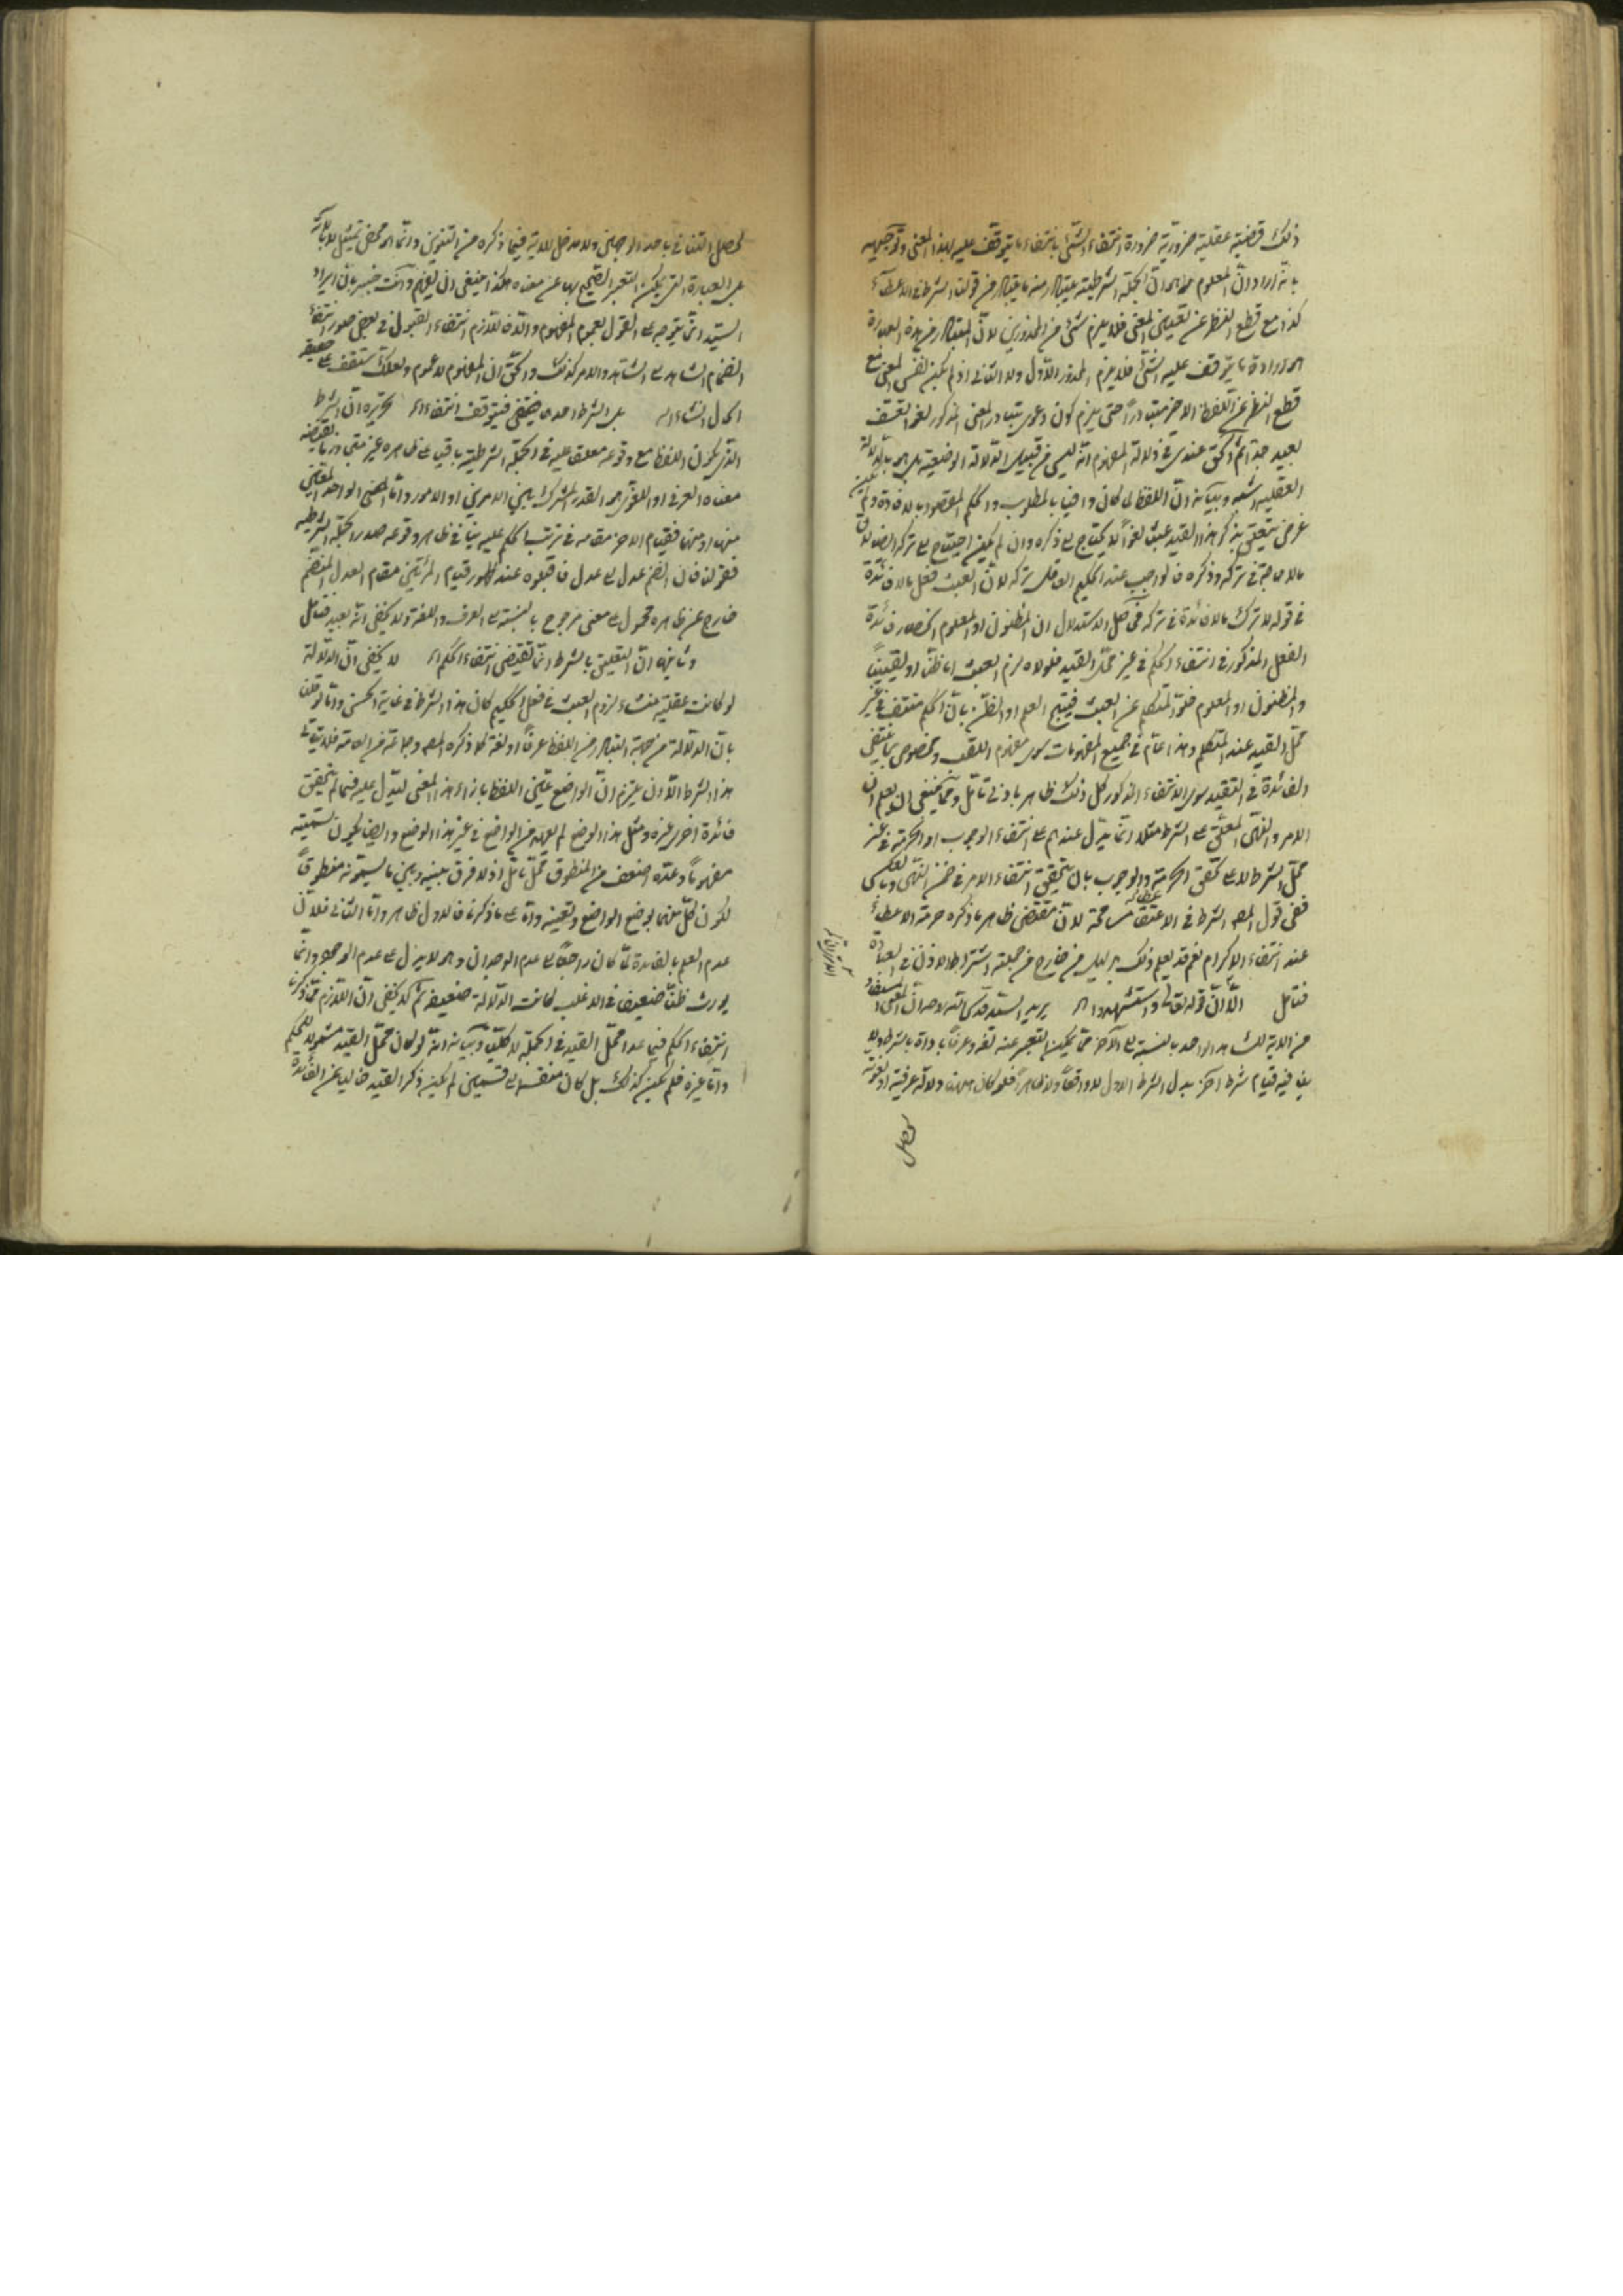 ذلك قضية عقلية ضرورية ضرورة انتفاء الشئ بانتفاء ما يتوقف عليه لهذا المعنى وتوجيهه
بانه اراد ان المعلوم ان الجملة الشرطية يتبادر منه ما يتبادر من قولنا الشرط في الاعطاء
كذا مع قطع النظر عن تعيين المعنى فلا يلزم شئ من المحذورين لان المتبادر من هذه العبارة
ارادة ما يتوقف عليه الشئ فلا يلزم المحذور الاول ولا الثاني اذ لم يكن نفس المعنى مع
قطع النظر عن اللفظ الاخر متبادراً حتى يلزم كون دعوى تبادر المعنى المذكور لغو التعسف
بعيد جدا ثم الحق عندي في دلالة المفهوم انه ليس من قبيل الدلالة الوضعية بل هو بالدلالة
العقلية اشبه وبيانه ان اللفظ لما كان وافيا بالمطلوب والحكم المقصود بالافادة ولم يكن
غرض يتعلق بذكر هذا القيد عبث لغواً لا يحتاج الى ذكره وان لم يكن احتياج الى تركه ايضا لان
ما لا حاجة في تركه وذكره فالواجب عند الحكيم العاقل تركه لان العبث فعل ما لا فائدة
في قوله لا ترك ما لا فائدة في تركه فحاصل الاستدلال ان المظنون او المعلوم انحصار فائدة
الفعل المذكور في انتفاء الحكم في غير محل القيد فلولاه لزم العبث اما ظنا او يقينا
والمظنون او المعلوم خلو المتكلم عن العبث فينتج العلم او الظن بان الحكم منتف في غير
محل القيد عند المتكلم وهذا عام في جميع المفهومات سوى مفهوم اللقب ومخصوص بما ينتفي
الفائدة في التقييد سوى الانتفاء المذكور كل ذلك ظاهر بادنى تأمل ومما ينبغي ان يعلم ان
الامر والنهى المعلق على الشرط مثلا انما يدل عندهم على انتفاء الوجوب او الحرمة في غير
محل الشرط لا على تحقق الحرمة والوجوب بان يتحقق انتفاء الامر في ضمن النهى وبالعكس
ففى قول المصـ الشرط في الاعطاء مسامحة لان مقتضى ظاهر ما ذكره حرمة الاعطاء
عند انتفاء الاكرام نعم قد يعلم ذلك بدليل من خارج من جملته اشتراط الاذن في العبادة
فتأمل الا ان قوله تعالى واستشهدوا اه يريد السيد قدس الله روحه ان المعنى المستفاد
من الاية للشاهد الواحد بالنسبة الى الآخر مما يمكن التعبير عنه لغة وعرفاً باداة الشرط ولا
ينافيه قيام شرط آخر بدل الشرط الاول لا واقعاً ولا ظاهراً فلو كان ههنا دلالة عرفية او لغوية
لحصل التنافي باحد الوجهين ولا مدخل للاية فيما ذكره من التنوين وانما هو محض تمثيل للاية
على العبارة التي يمكن التعبير الصحيح بها عن معناه هكذا ينبغى ان يفهم وانت خبير بان ايراد
السيد انما يتوجه على القول بعموم المفهوم والا فاللازم انتفاء القبول في بعض صور انتفاء
انضمام الشاهد الى الشاهد والامر كذلك والحق ان المفهوم لا عموم ولعلك ستقف على حقيقة
الحال انشاء الله بل الشرط احدهما فيتوقف انتفاء اه تحريره ان الشرط
الذي يكون اللفظ مع وقوعه معلق عليه في الجملة الشرطية باقيا على ظاهره غير متجاوز بالقرينة
معناه العرفى او اللغوى هو القدر المشترك بين الامرين او الامور واما المعنى الواحد المعين
منها فقيام الاخر مقامه في ترتب الحكم عليه ينافي ظاهر وقوعه صدر الجملة الشرطية
فقولنا فان انضم عدل الى عدل فاقبلوه عند ظهور قيام المرأتين مقام العدل المنضم
خارج عن ظاهره محمول على معنى مرجوح بالنسبة الى العرف واللغة ولا يخفى انه بعيد فتأمل
وثانيها ان التعليق بالشرط انما يقتضى انتفاء الحكم اه لا يخفى ان الدلالة
لو كانت عقلية منشاء لزوم العبث في فعل الحكيم كان هذا الشرط في غاية الحسن واما لو قلنا
بان الدلالة من جهة التبادر من اللفظ عرفا او لغة كما ذكره المصـ وجماعة من العامة فلا يتأتى
هذا الشرط الا ان يلتزم ان الواضع عين اللفظ بازاء هذا المعنى ليدل عليه فيما لم يتحقق
فائدة اخرى غيره ومثل هذا الوضع لم يعهد من الواضع في غير هذا الوضع وايضا يكون تسميته
مفهوماً وعده اضعف من المنطوق محل تأمل اذ لا فرق بينه وبين ما يسمونه منطوقاً
لكون كل منهما بوضع الواضع وتعيينه واما على ما ذكرنا فالاول ظاهر واما الثاني فلان
عدم العلم بالفائدة لما كان راجعاً الى عدم الوجدان وهو لا يدل على عدم الوجود وانما
يورث ظنا ضعيفا في الاغلب كانت الدلالة ضعيفة ثم لا يخفى ان اللازم مما ذكرنا
انتفاء الحكم فيما عدا محل القيد في الجملة لا كليا وبيانه انه لو كان محل القيد مشمولا للحكم
واما غيره فلم يكن كذلك بل كان منقسما الى قسمين لم يكن ذكر القيد خاليا عن الفائدة
لحصل